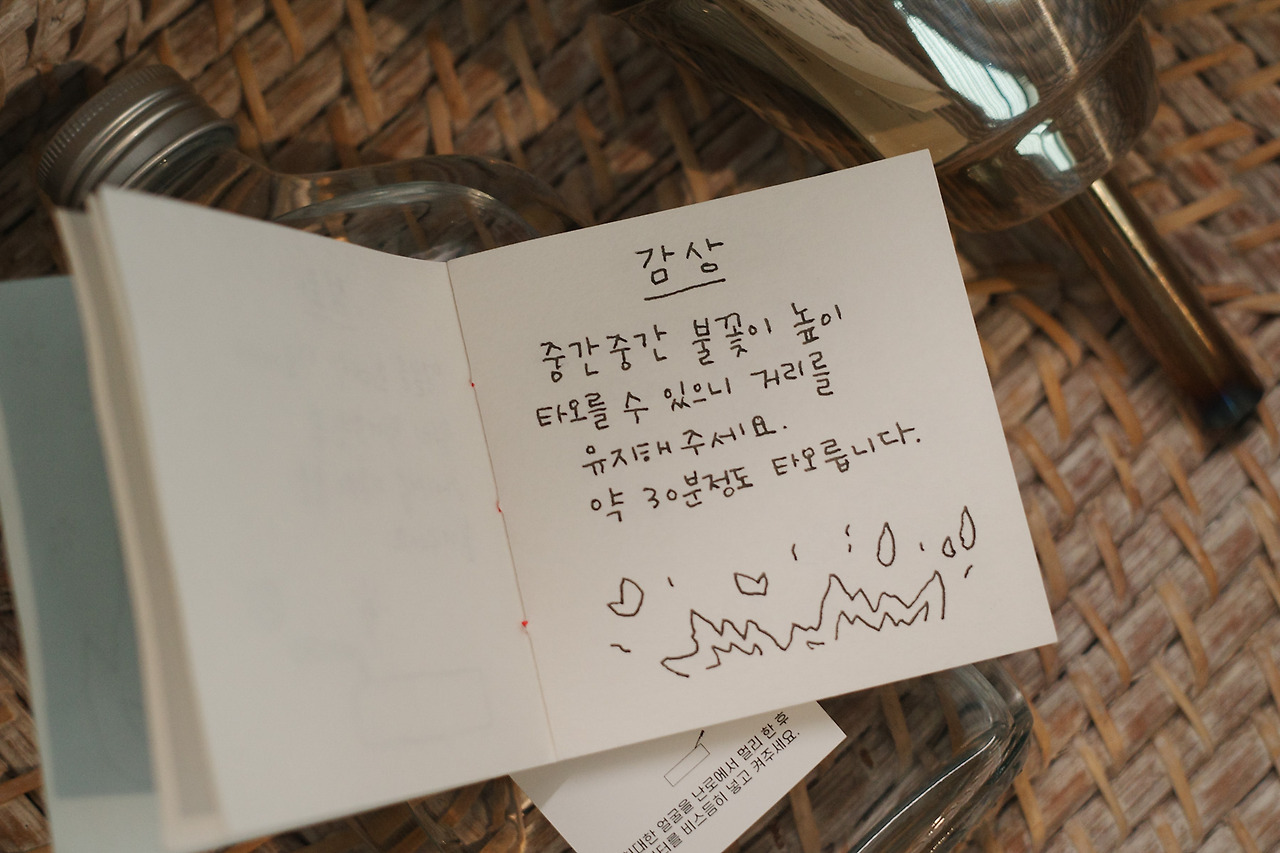 감상
중간중간 불꽃이 높이
타오를 수 있으니 거리를
유지해주세요.
약 30분정도 타오릅니다.
얼굴을 난로에서 멀리 한 후
비스듬히 넣고 켜주세요.